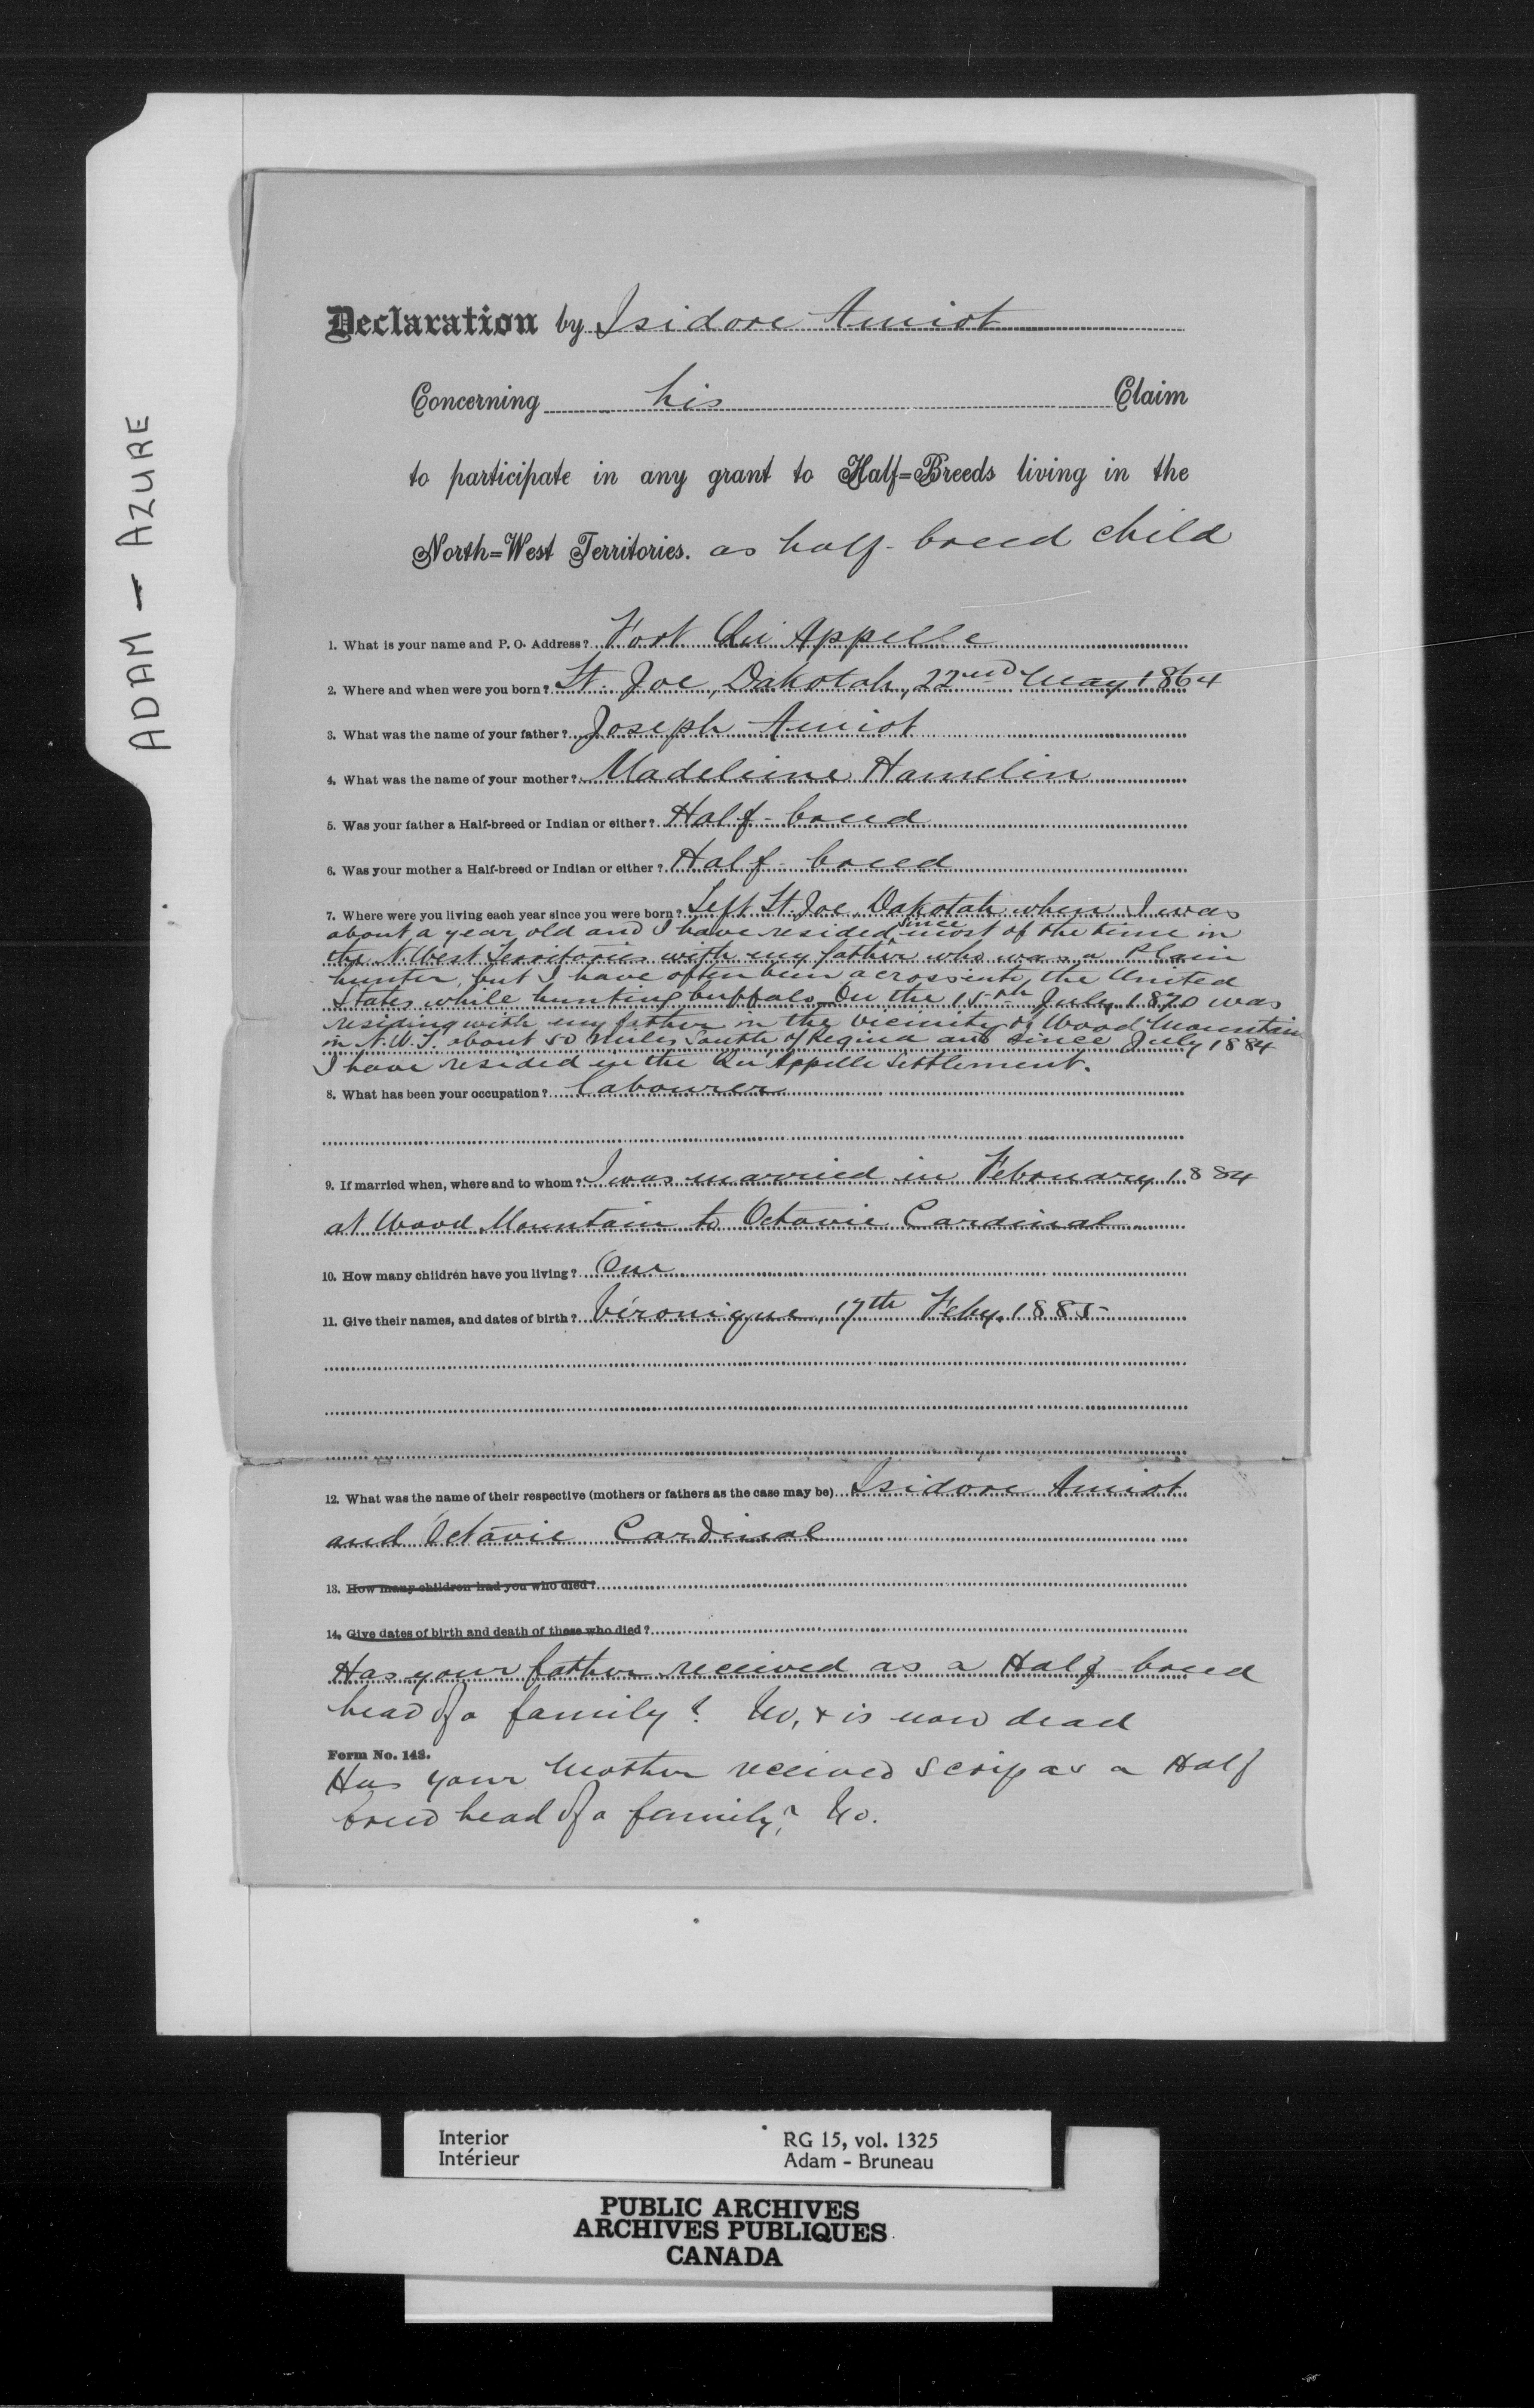 ADAM - AZURE
Declaration by Isidore Amiot
Concerning his Claim
to participate in any grant to Half=Breeds living in the
North=West Territories. as half-breed child
1. What is your name and P. O. Address? Fort Qu'Appelle
2. Where and when were you born? St. Joe, Dakotah, 22nd May 1864
3. What was the name of your father? Joseph Amiot
4. What was the name of your mother? Madeleine Hamelin
5. Was your father a Half-breed or Indian or either? Half-breed
6. Was your mother a Half-breed or Indian or either? Half-breed
7. Where were you living each year since you were born? Left St. Joe, Dakotah when I was
about a year old and I have resided since most of the time in
the N. West Territories with my father who was a Plain
hunter, but I have often been across into the United
States while hunting buffalo. On the 15th July 1870 was
residing with my father in the vicinity of Wood Mountain
in N.W.T. about 50 miles South of Regina and since July 1884
I have resided in the Qu'Appelle Settlement.
8. What has been your occupation? labourer
9. If married when, where and to whom? I was married in February 1884
at Wood Mountain to Octavie Cardinal
10. How many children have you living? One
11. Give their names, and dates of birth? Véronique, 17th Feby. 1885
12. What was the name of their respective (mothers or fathers as the case may be) Isidore Amiot
and Octavie Cardinal
13. How many children had you who died?
14. Give dates of birth and death of those who died?
Has your father received as a Half-breed
head of a family? No, & is now dead
Form No. 143.
Has your Mother received scrip as a Half
breed head of a family? No.
Interior
Intérieur
RG 15, vol. 1325
Adam - Bruneau
PUBLIC ARCHIVES
ARCHIVES PUBLIQUES
CANADA